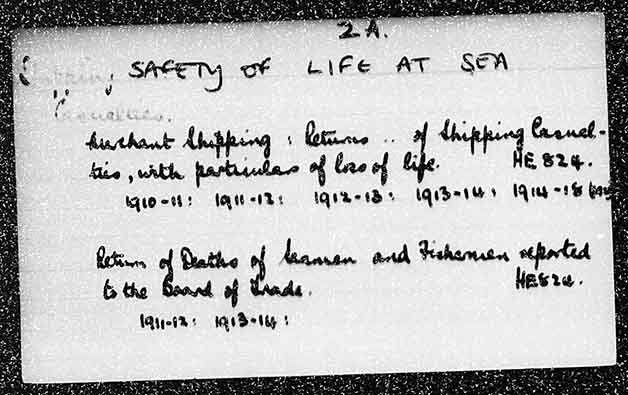 2A.
SAFETY OF LIFE AT SEA
Casualties.
Merchant Shipping : Returns .. of Shipping Casual-
ties, with particulars of loss of life. HE 824.
1910-11: 1911-12: 1912-13: 1913-14: 1914-18
Return of Deaths of Seamen and Fishermen reported
to the Board of Trade. HE 824.
1911-12: 1913-14: